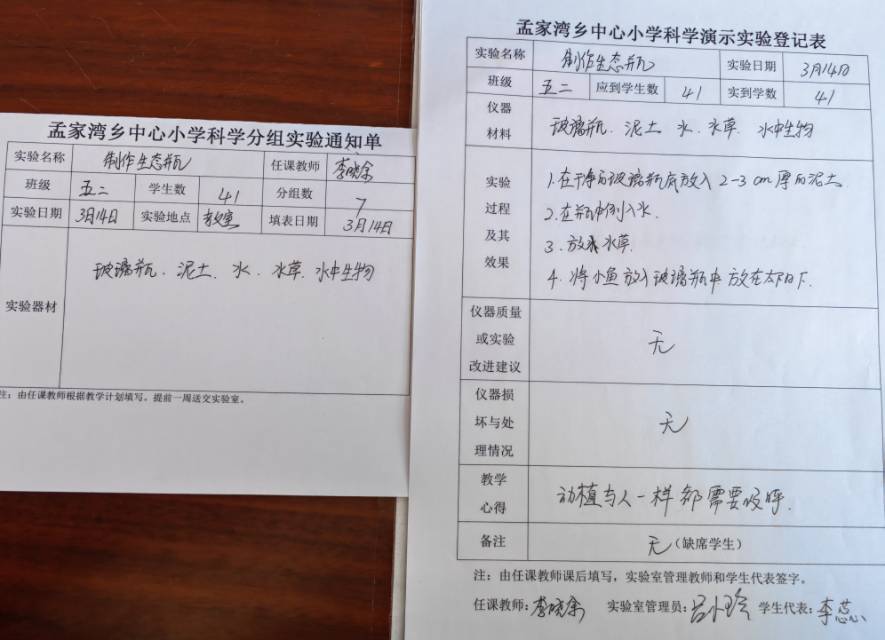 孟家湾乡中心小学科学分组实验通知单
实验名称 制作生态瓶 任课教师 李晓余
班级 五二 学生数 41 分组数 7
实验日期 3月14日 实验地点 教室 填表日期 3月14日
实验器材 玻璃瓶、泥土、水、水草、水中生物
注：由任课教师根据教学计划填写。提前一周送交实验室。
孟家湾乡中心小学科学演示实验登记表
实验名称 制作生态瓶 实验日期 3月14日
班级 五二 应到学生数 41 实到学数 41
仪器
材料 玻璃瓶、泥土 水、水草、水中生物
实验
过程
及其
效果
1.在干净的玻璃瓶底放入2-3cm厚的泥土.
2.在瓶中倒入水.
3.放水草.
4.将小鱼放入玻璃瓶中放在太阳下.
仪器质量
或实验
改进建议
无
仪器损
坏与处
理情况
无
教学
心得
动植与人一样都需要呼吸.
备注 无(缺席学生)
注：由任课教师课后填写，实验室管理教师和学生代表签字。
任课教师: 李晓余 实验室管理员: 吕小玲 学生代表: 李蕊